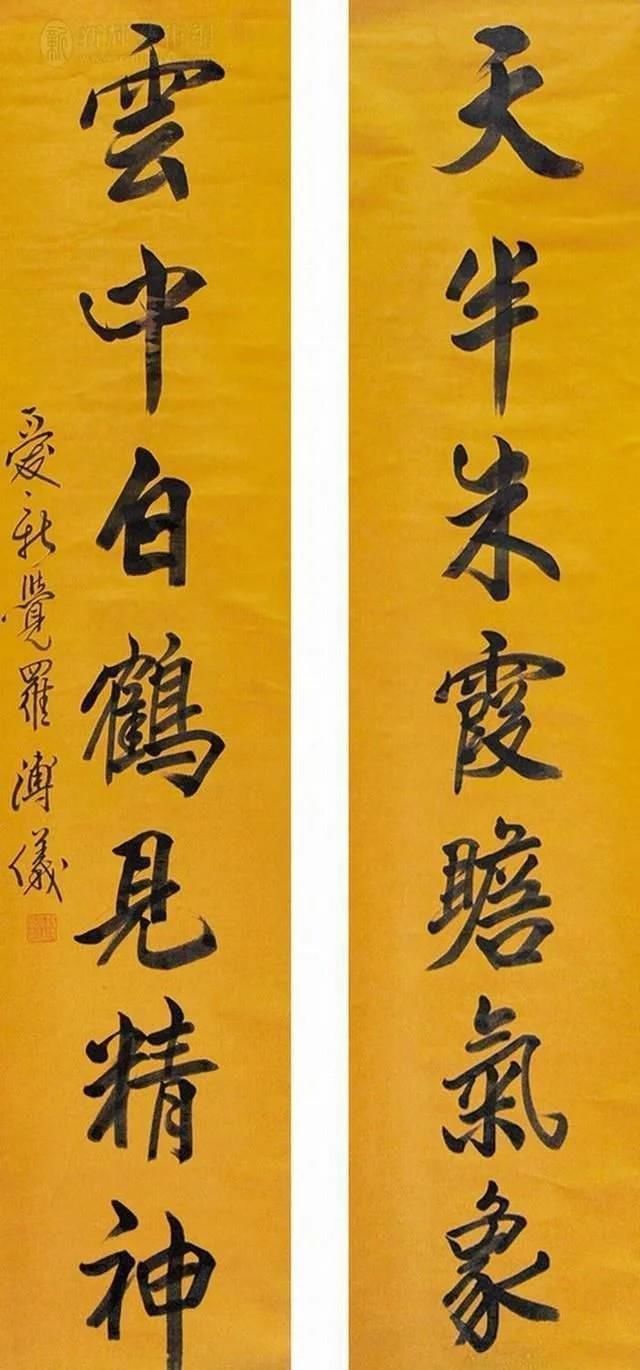 天半朱霞瞻氣象
雲中白鶴見精神
愛新覺羅溥儀